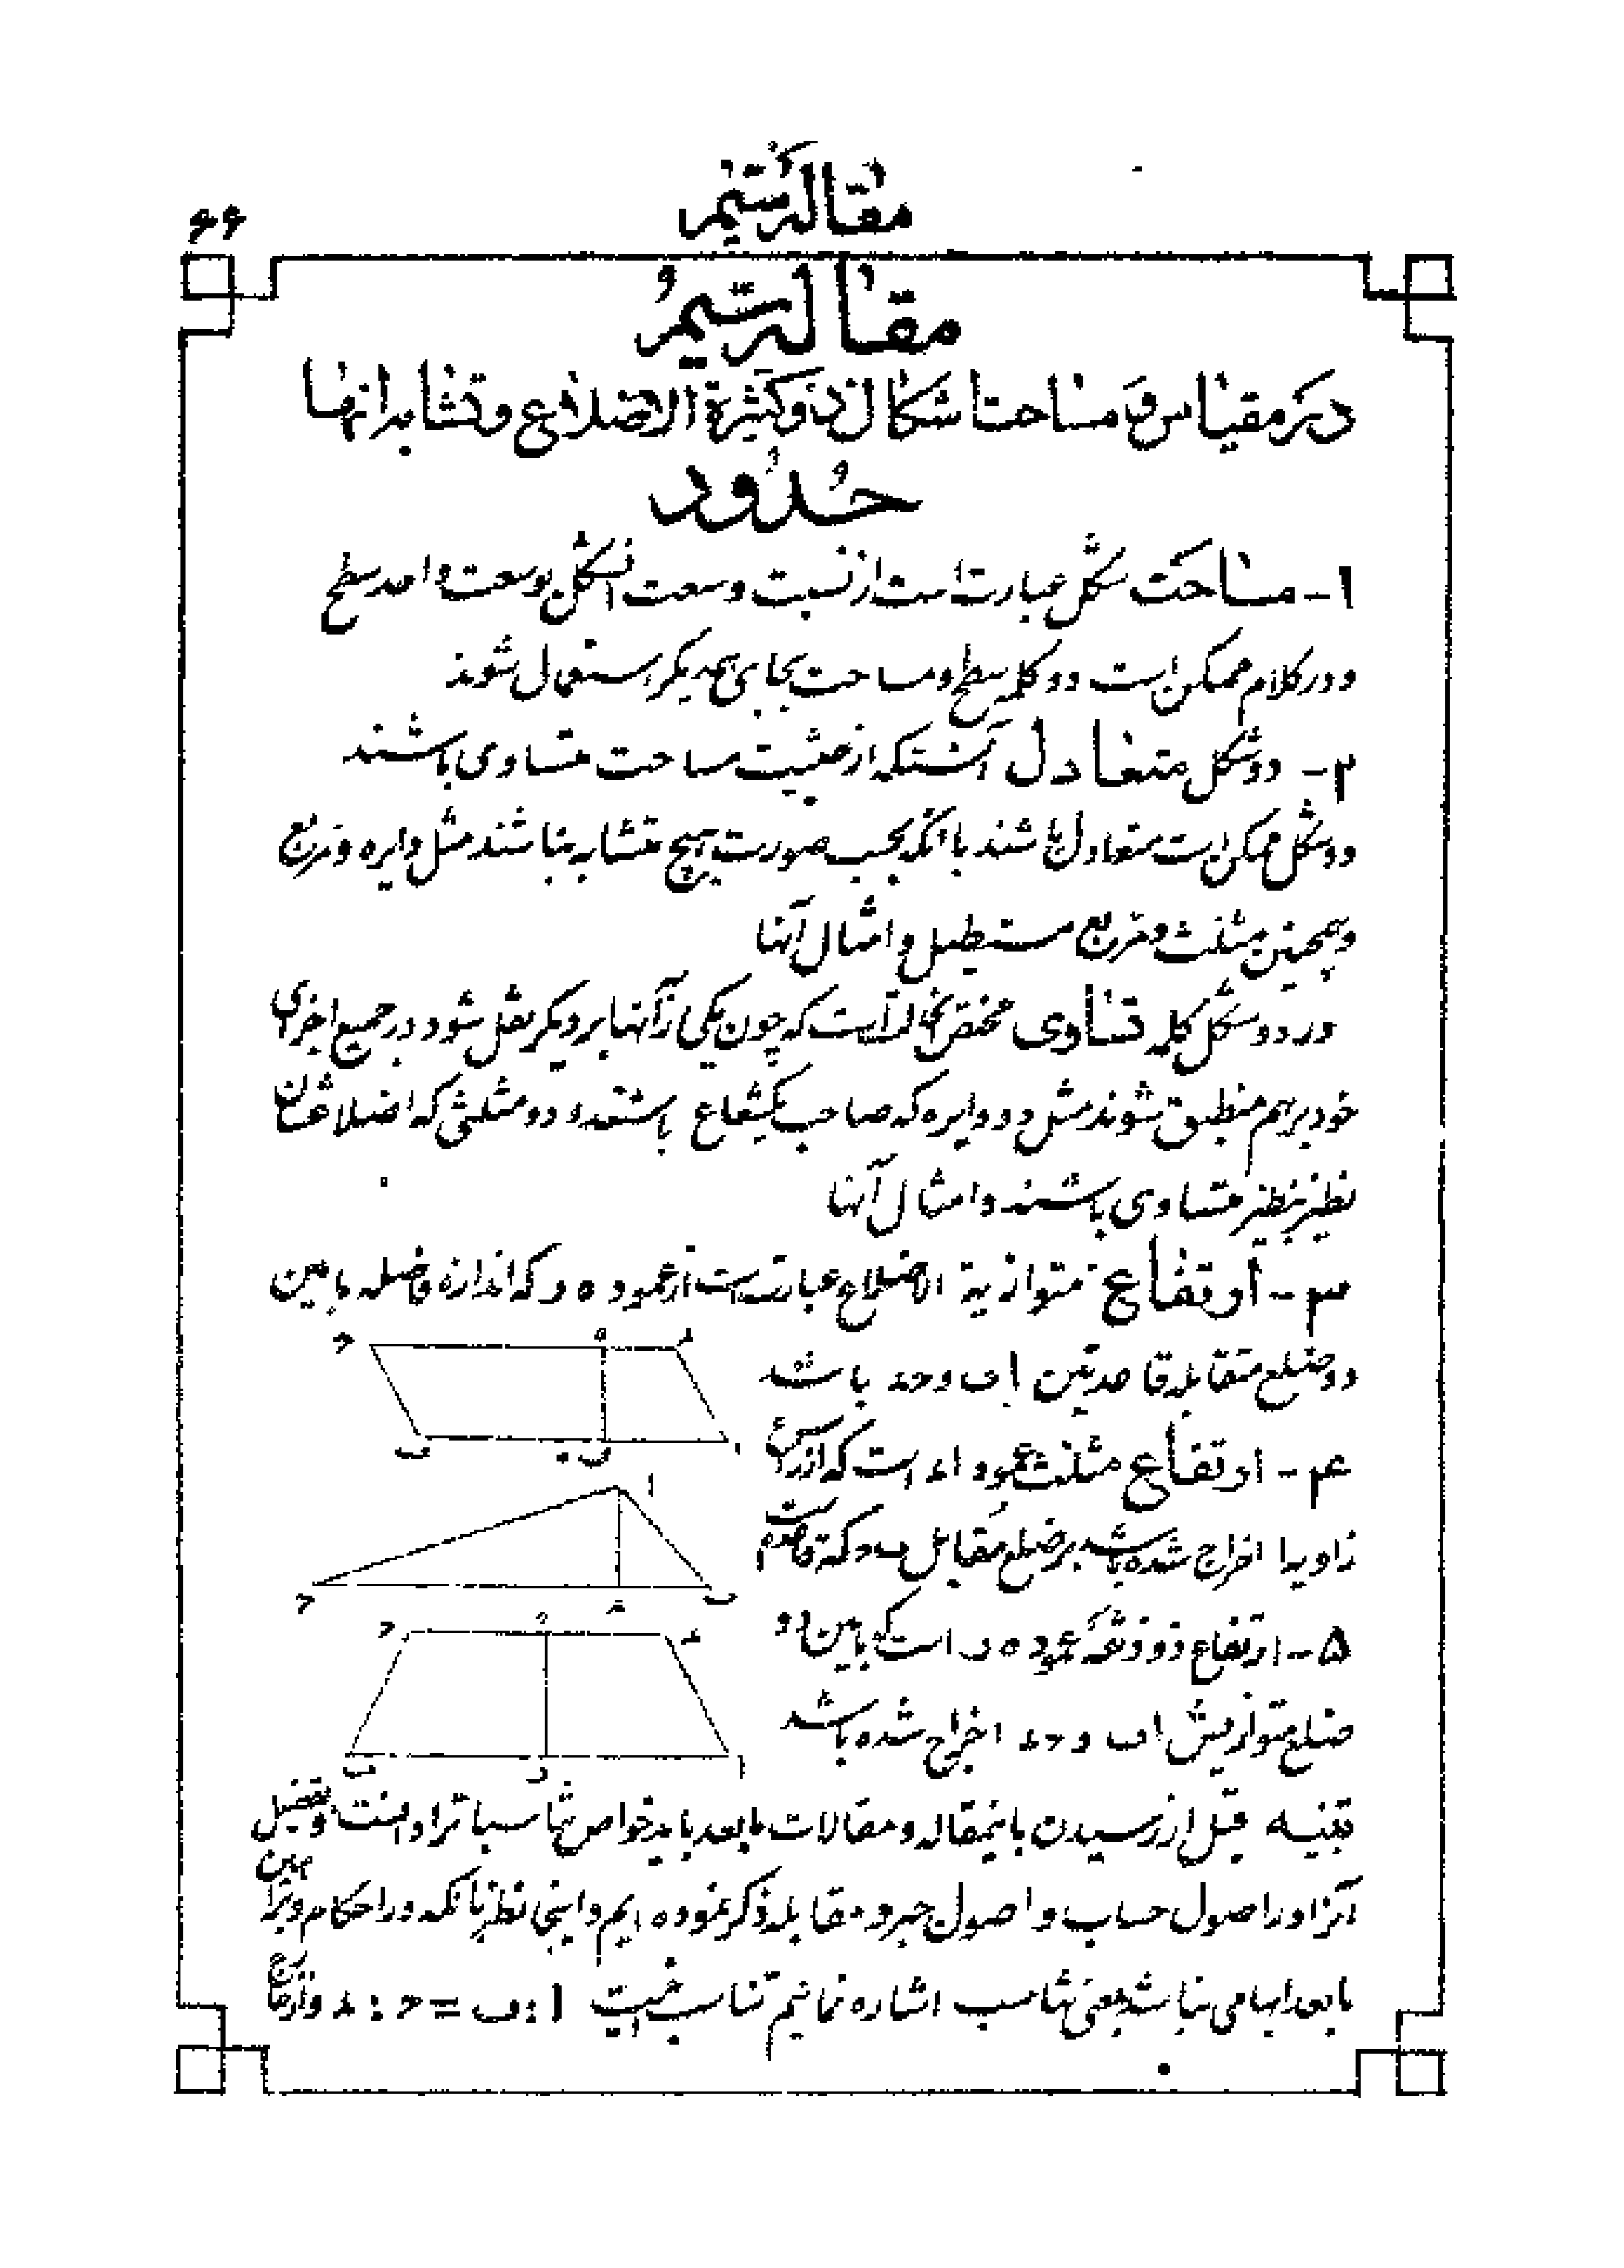 مقاله سیم
۶۶
مقاله سیم
در مقیاس و مساحت اشکال ذو کثیرة الاضلاع و تشابه انها
حدود
۱- مساحت شکل عبارت است از نسبت وسعت انشکل بوسعت واحد سطح
و در کلام ممکن است دو کلمه سطح و مساحت بجای همدیگر استعمال شوند
۲- دو شکل متعادل آنستکه از حیثیت مساحت متساوی باشند
دو شکل ممکن است متعادل باشند با آنکه بحسب صورت هیچ متشابه نباشند مثل دایره و مربع
و همچنین مثلث و مربع مستطیل و امثال آنها
در دو شکل کلمه تساوی مختص بحالتی است که چون یکی از آنها بر دیگر نقل شود در جمیع اجزای
خود بر هم منطبق شوند مثل دو دایره که صاحب یکشعاع باشند و دو مثلثی که اضلاعشان
نظیر بنظیر متساوی باشند و امثال آنها
۳- ارتفاع متوازیة الاضلاع عبارتست از عمود ه و که اندازه فاصله مابین
دو ضلع متقابله قاعدتین اب و حد باشد
۴- ارتفاع مثلث عمود اد است که از رأس
زاویه ا اخراج شده باشد بر ضلع مقابل ب ح که قاعده است
۵- ارتفاع ذو ذنقه عمود ه ر است که مابین دو
ضلع متوازیش اب و حد اخراج شده باشد
تنبیه قبل از رسیدن باینمقاله و مقالات مابعد باید خواص تناسبات را دانست و تفصیل
آنرا در اصول حساب و اصول جبر و مقابله ذکر نموده ایم و اینجا نظر بانکه در احکام و براهین
مابعد ابهامی نباشد ببعضی تناسب اشاره نمائیم تناسب اینست ا : ب = ح : د و ارجاع